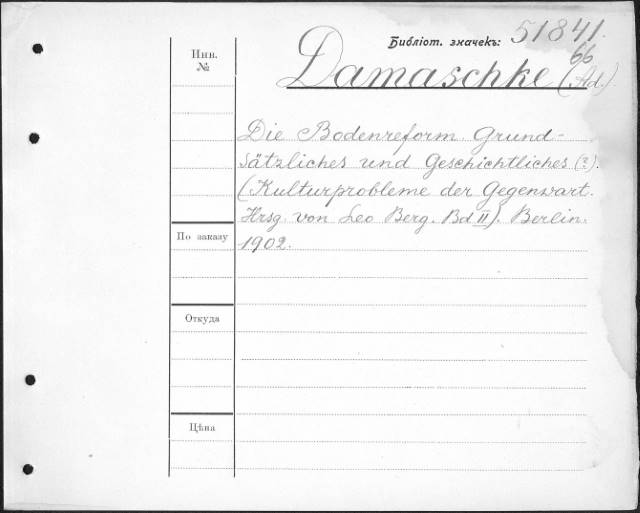 Библіот. значекъ: 51841.
66
Инв.
№
Damaschke (Ad.)
Die Bodenreform. Grund-
sätzliches und Geschichtliches (2).
(Kulturprobleme der Gegenwart.
Hrsg. von Leo Berg. Bd II). Berlin.
1902.
По заказу
Откуда
Цѣна